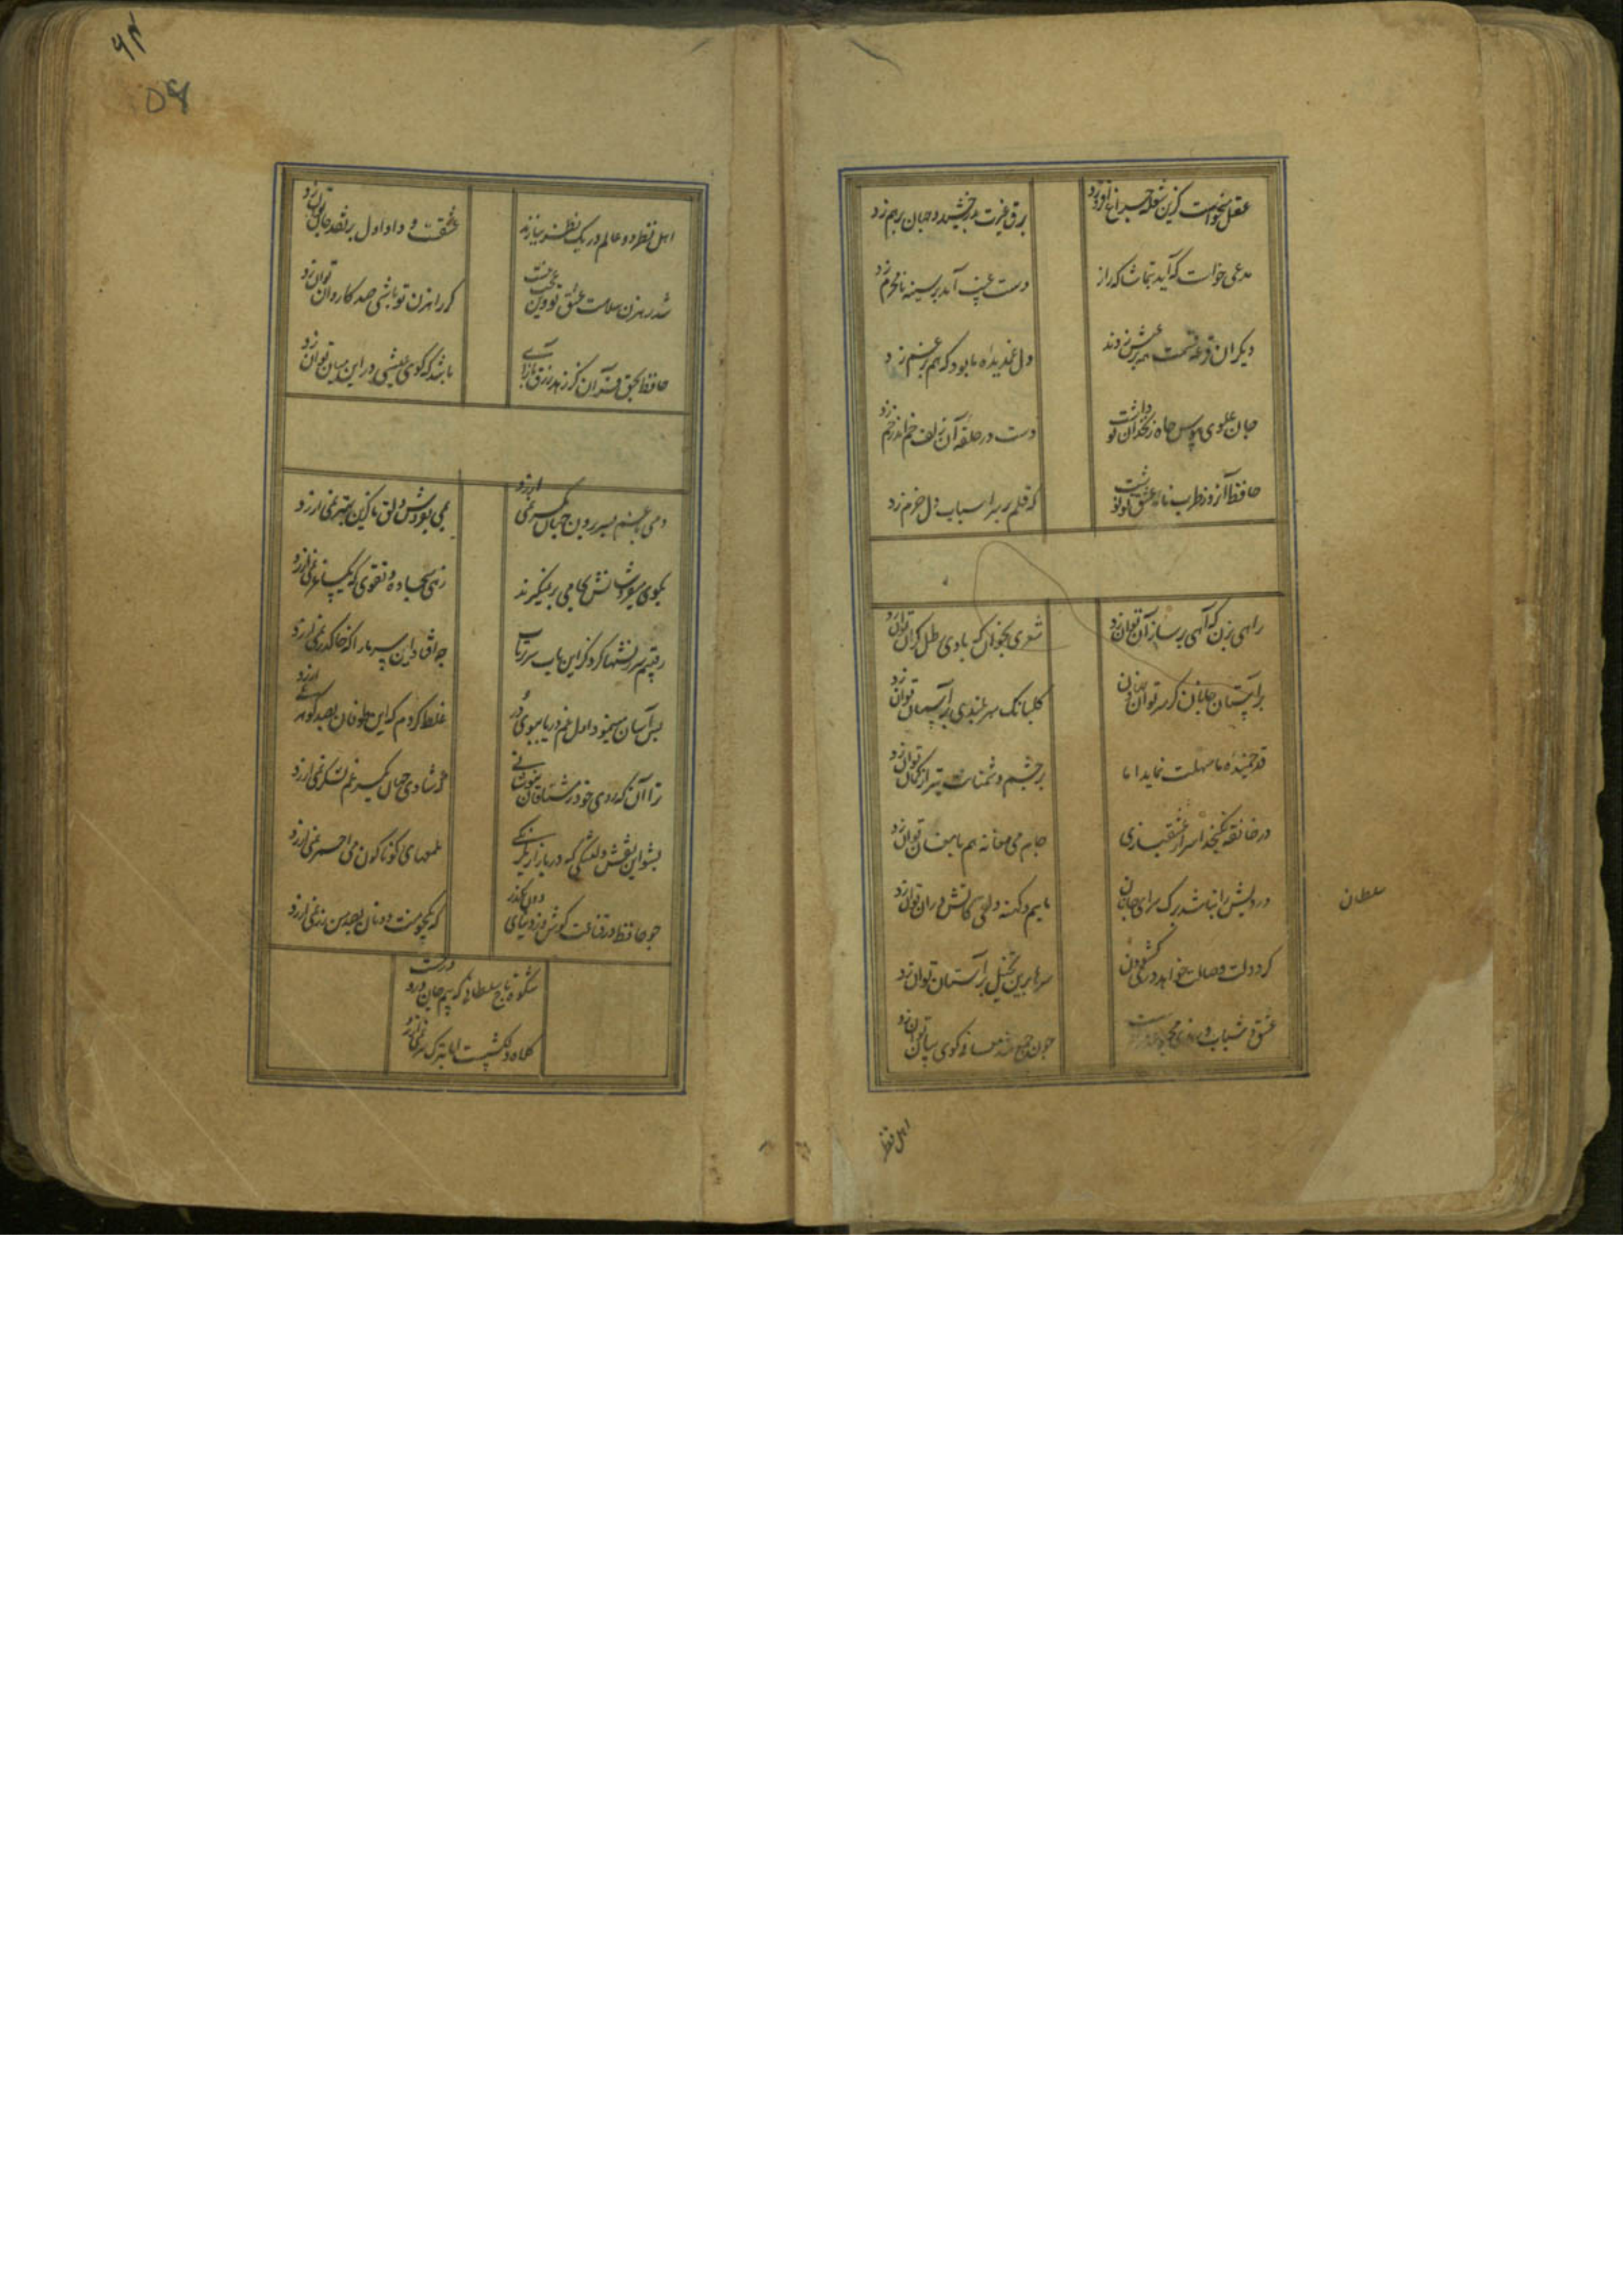 عقل میخواست کزین شعله چراغ افروزد
برق غیرت بدرخشید و جهان برهم زد
مدعی خواست که آید بتماشاکه راز
دست غیب آمد و بر سینه نامحرم زد
دیکران قرعه قسمت همه بر عیش زدند
دل غمدیده ما بود که هم بر غم زد
جان علوی هوس چاه زنخدان تو داشت
دست در حلقه آن زلف خم اندر خم زد
حافظ آنروز طرب نامه عشق تو نوشت
که قلم بر سر اسباب دل خرم زد
راهی بزن که آهی بر ساز آن توان زد
شعری بخوان که با وی رطل کران توان زد
بر آستان جانان کر سر توان نهادن
کلبانک سربلندی بر آسمان توان زد
قد خمیده ما سهلت نماید اما
بر چشم دشمنان تیر از کمان توان زد
در خانقه نکنجد اسرار عشقبازی
جام می مغانه هم با مغان توان زد
درویش را نباشد برک سرای سلطان
ماییم و کهنه دلقی کاتش در آن توان زد
کر دولت وصالت خواهد دری کشودن
سرها بدین تخیل بر آستان توان زد
عشق و شباب و رندی مجموعه مرادست
چون جمع شد معانی کوی بیان توان زد
اهل نظر
اهل نظر دو عالم در یک نظر ببازند
عشقست و داو اول بر نقد جان توان زد
شد رهزن سلامت زلف تو وین عجب نیست
کر راهزن تو باشی صد کاروان توان زد
حافظ بحق قرآن کز زرق بازآی
باشد که کوی عیشی در این میان توان زد
دمی با غم بسر بردن جهان یکسر نمی ارزد
بمی بفروش دلق ما کزین بهتر نمی ارزد
بکوی میفروشانش بجامی بر نمیکیرند
زهی سجاده و تقوی که یک ساغر نمی ارزد
رقیبم سرزنشها کرد کز این باب سر برتاب
چه افتاد این سر ما را که خاک در نمی ارزد
بس آسان مینمود اول غم دریا ببوی در
غلط کردم که این طوفان بصد کوهر نمی ارزد
ترا آن به که روی خود ز مشتاقان بپوشانی
که شادی جهان یکسر غم لشکر نمی ارزد
بشو این نقش دلتنکی که در بازار یکرنکی
کوناکون می احمر نمی ارزد
چو حافظ در قناعت کوش و از دنیای دون بکذر
که یکجو منت دونان بصد من زر نمی ارزد
شکوه تاج سلطانی که بیم جان درو درجست
کلاه دلکشست اما بترک سر نمی ارزد